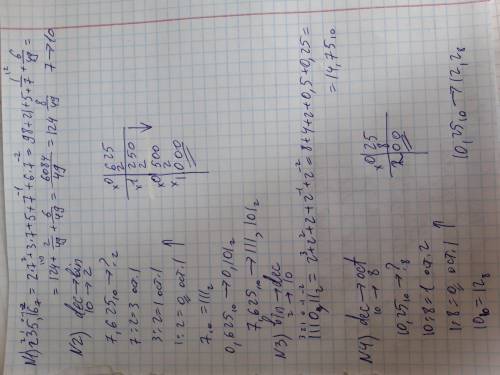 N1) 235,16₇ = 2·7²+3·7+5+7⁻¹+6·7⁻² = 98+21+5+1/7+6/49=
=124+ +6/49 = 6084/49 = 124 8/49 7→10
N2) dec→bin
10→2
7,625₁₀→?·₂
7:2=3 ост.1
3:2=1 ост.1
1:2=0, ост.1 ↑
7₁₀=111₂
x 0 625
2
x 1 250
2
x 0 500
2
x 1 000
0,625₁₀→0,101₂
7,625₁₀→111,101₂
N3) bin→dec
2→10
1110,11₂ = 2³+2²+2+2⁻¹+2⁻² = 8+4+2+0,5+0,25=
=14,75₁₀
N4) dec→oct
10→8
10,25₁₀→?·₈
10:8=1 ост.2
1:8=0, ост.1 ↑
10₁₀=12₈
x 0 25
8
2 00
10,25₁₀→12,2₈